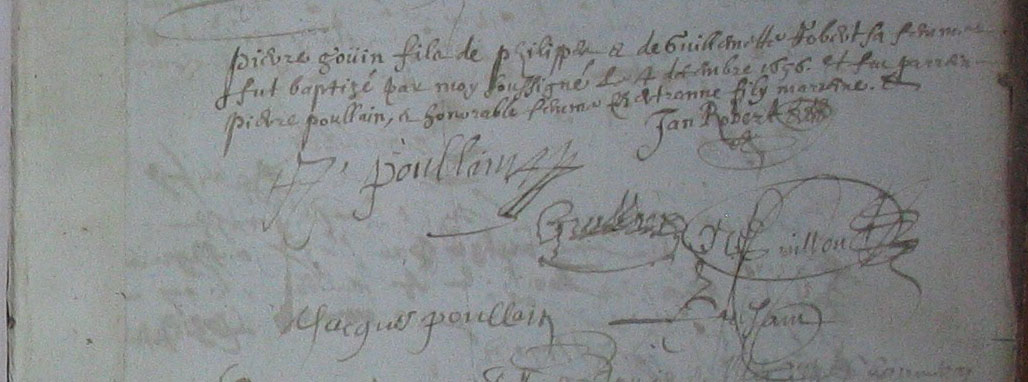 pierre goüin filz de philippe & de Guillemette Robert sa femme
fut baptizé par moy soussigné le 4 decembre 1656. et fut parrain
pierre poullain, & honorable femme filz marraine. &
Jan Robert
P. poullain
Guillou
Jacques poullain
Jam